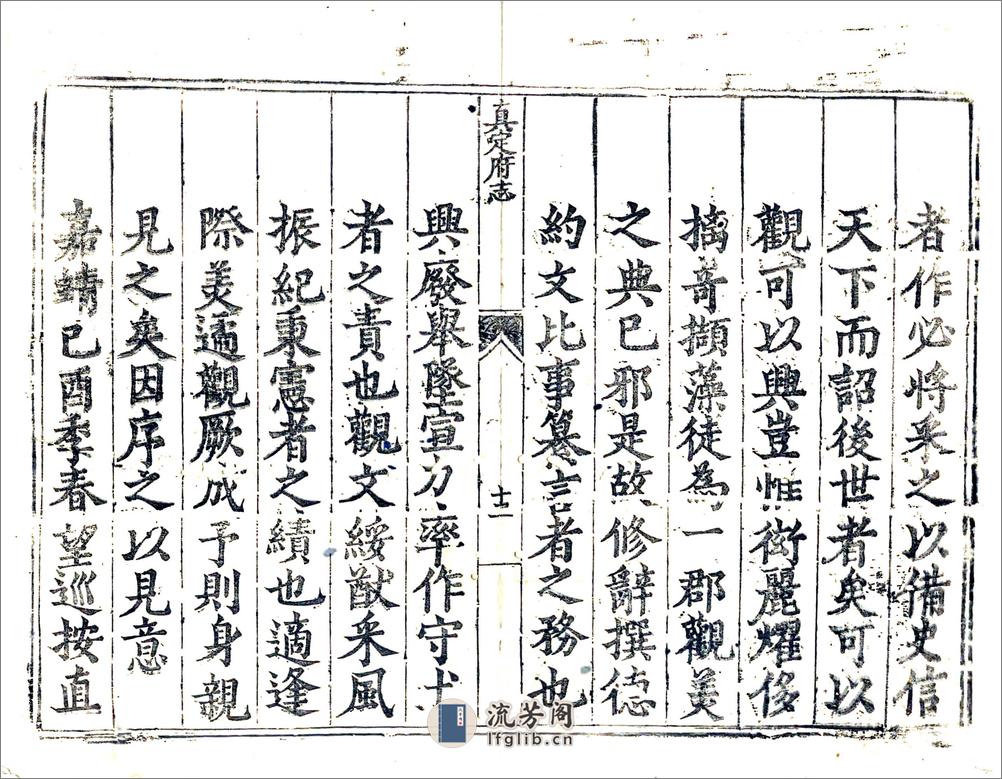 者作必將采之以備史信
天下而詔後世者矣可以
觀可以興豈惟衒麗耀侈
摛奇擷藻徒為一郡觀美
之典已邪是故修辭撰德
約文比事纂言者之務也
真定府志
十二
興廢舉墜宣力率作守土
者之責也觀文綏猷采風
振紀秉憲者之績也適逢
際美遹觀厥成予則身親
見之矣因序之以見意
嘉靖已酉季春望巡按直
流芳阁
lfglib.cn